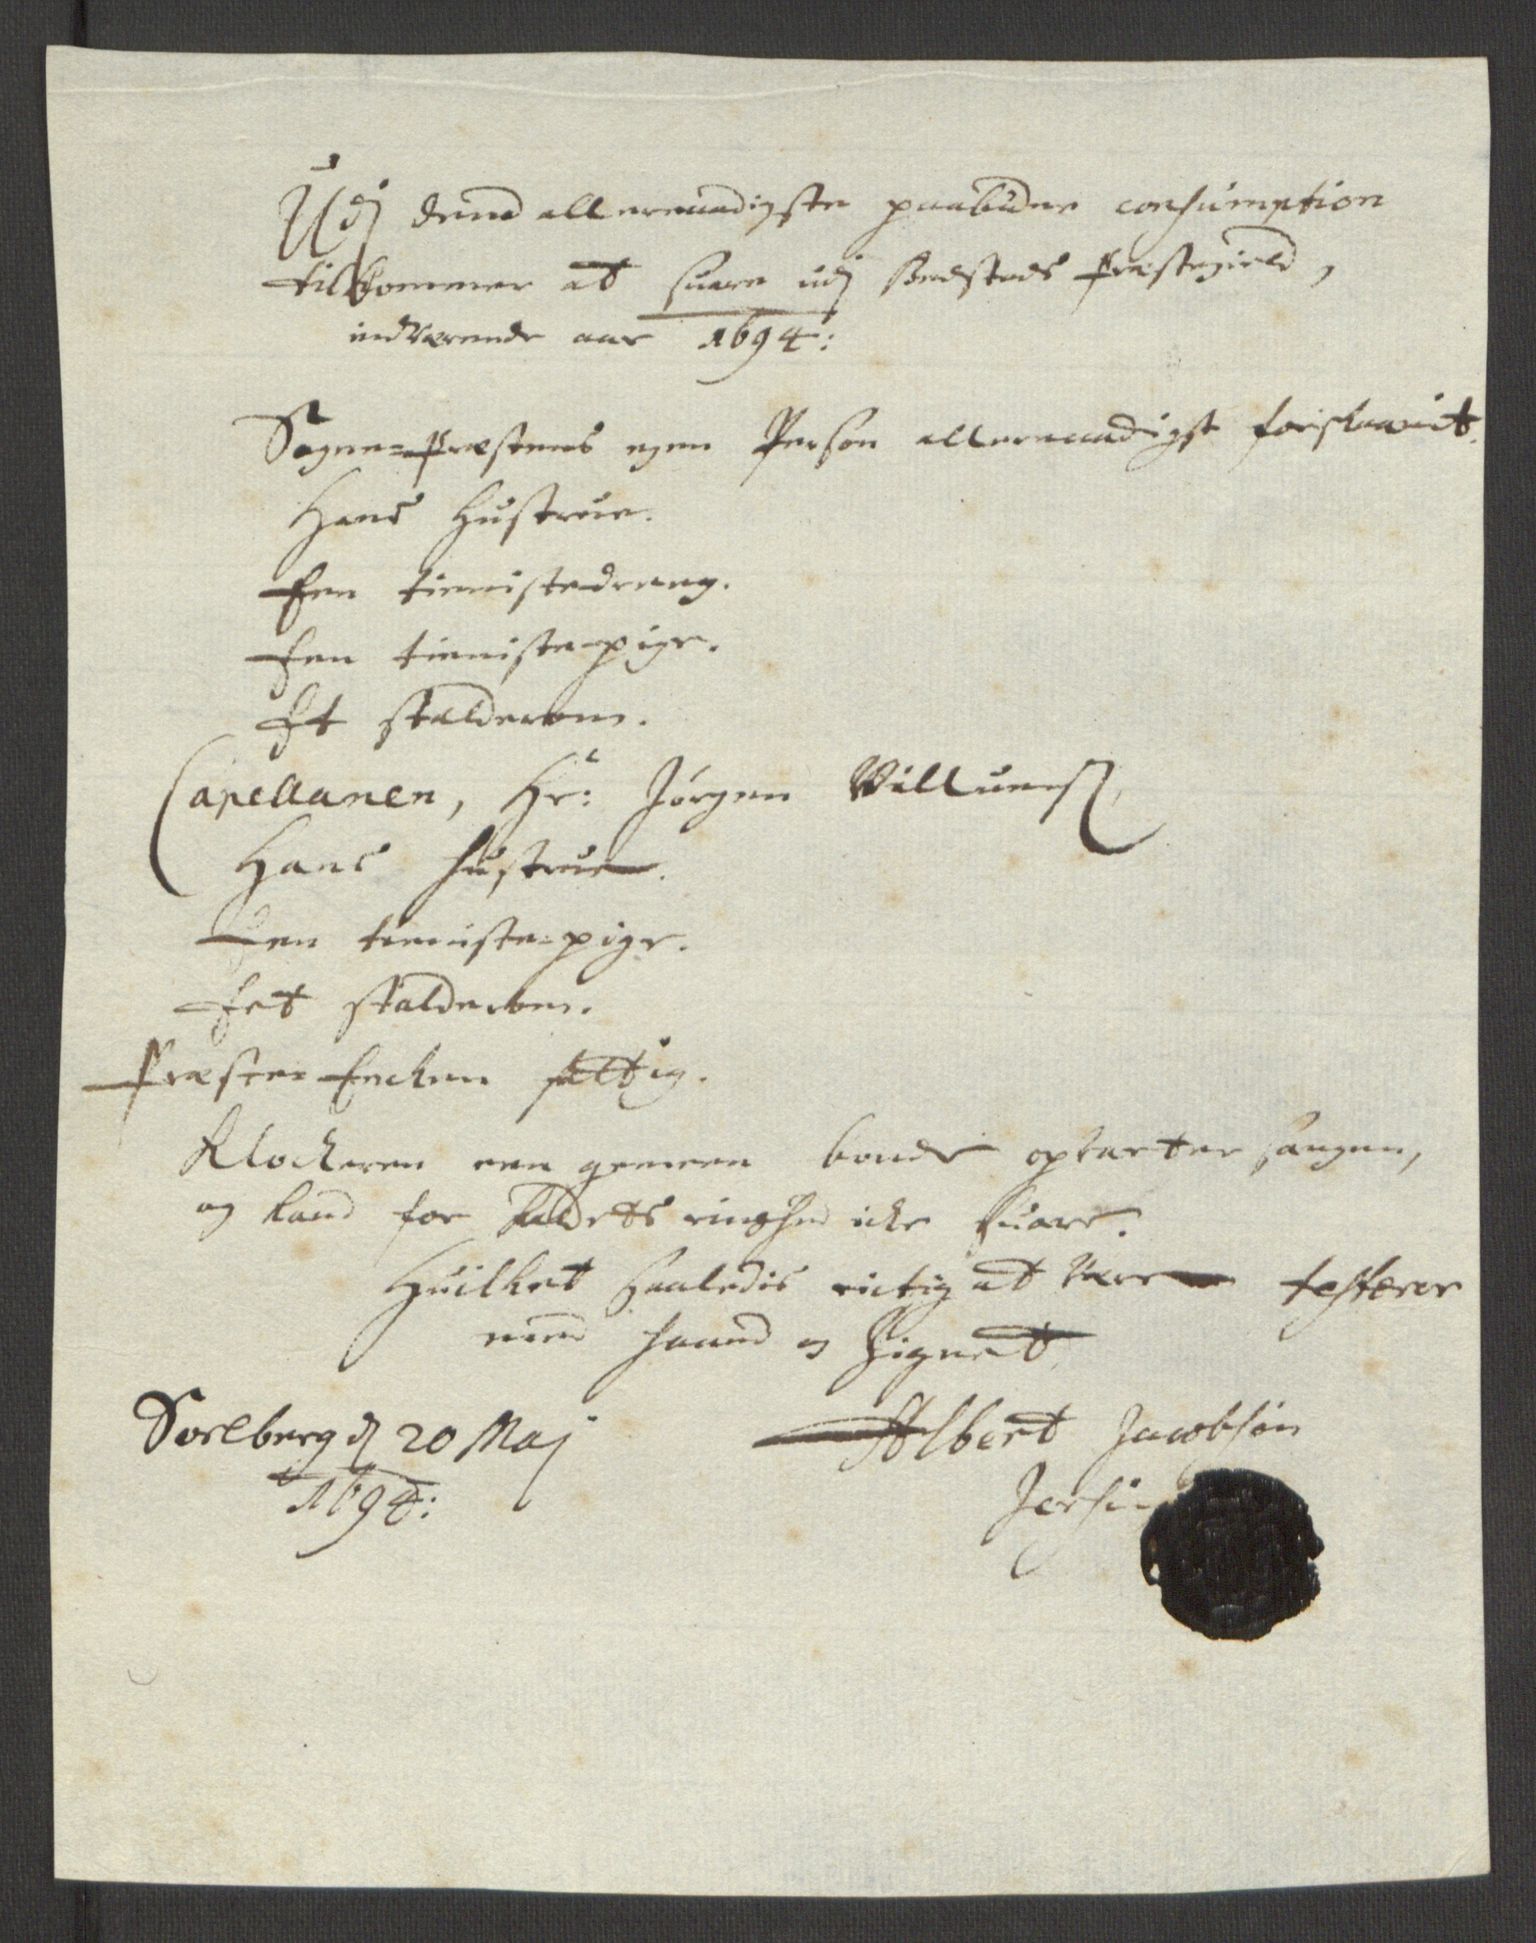 Udj dend allernaadigste paabudne consumption
tilkommer at suare udj Sandsteds Præstegield,
indværende aar 1694:
Sogne-Præstens egen Person allernaadigst forskaanit.
Hans Hustrue.
Een tienistedreng.
Een tieniste-pige.
Et stalderom.
Capellanen, Hr: Jörgen Villumss,
Hans hustrue.
Een tieniste-pige.
Eet stalderom.
Præste-Encken fattig.
Klockeren een gemeen bonde opvarter sangen,
og kand for kaldets ringhed icke suare.
Huilket saaledis rictig at være testerer
med haand og Signet
Soelberg d 20 Maj
1694:
Albert Jacobsön